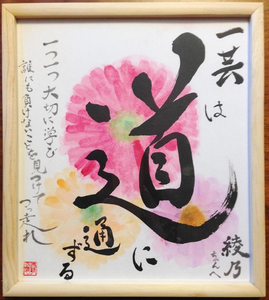 一芸は
道に
通ずる
綾乃
ちゃんへ
一つ一つ大切に学び
誰にも負けないことを見つけて
つっ走れ